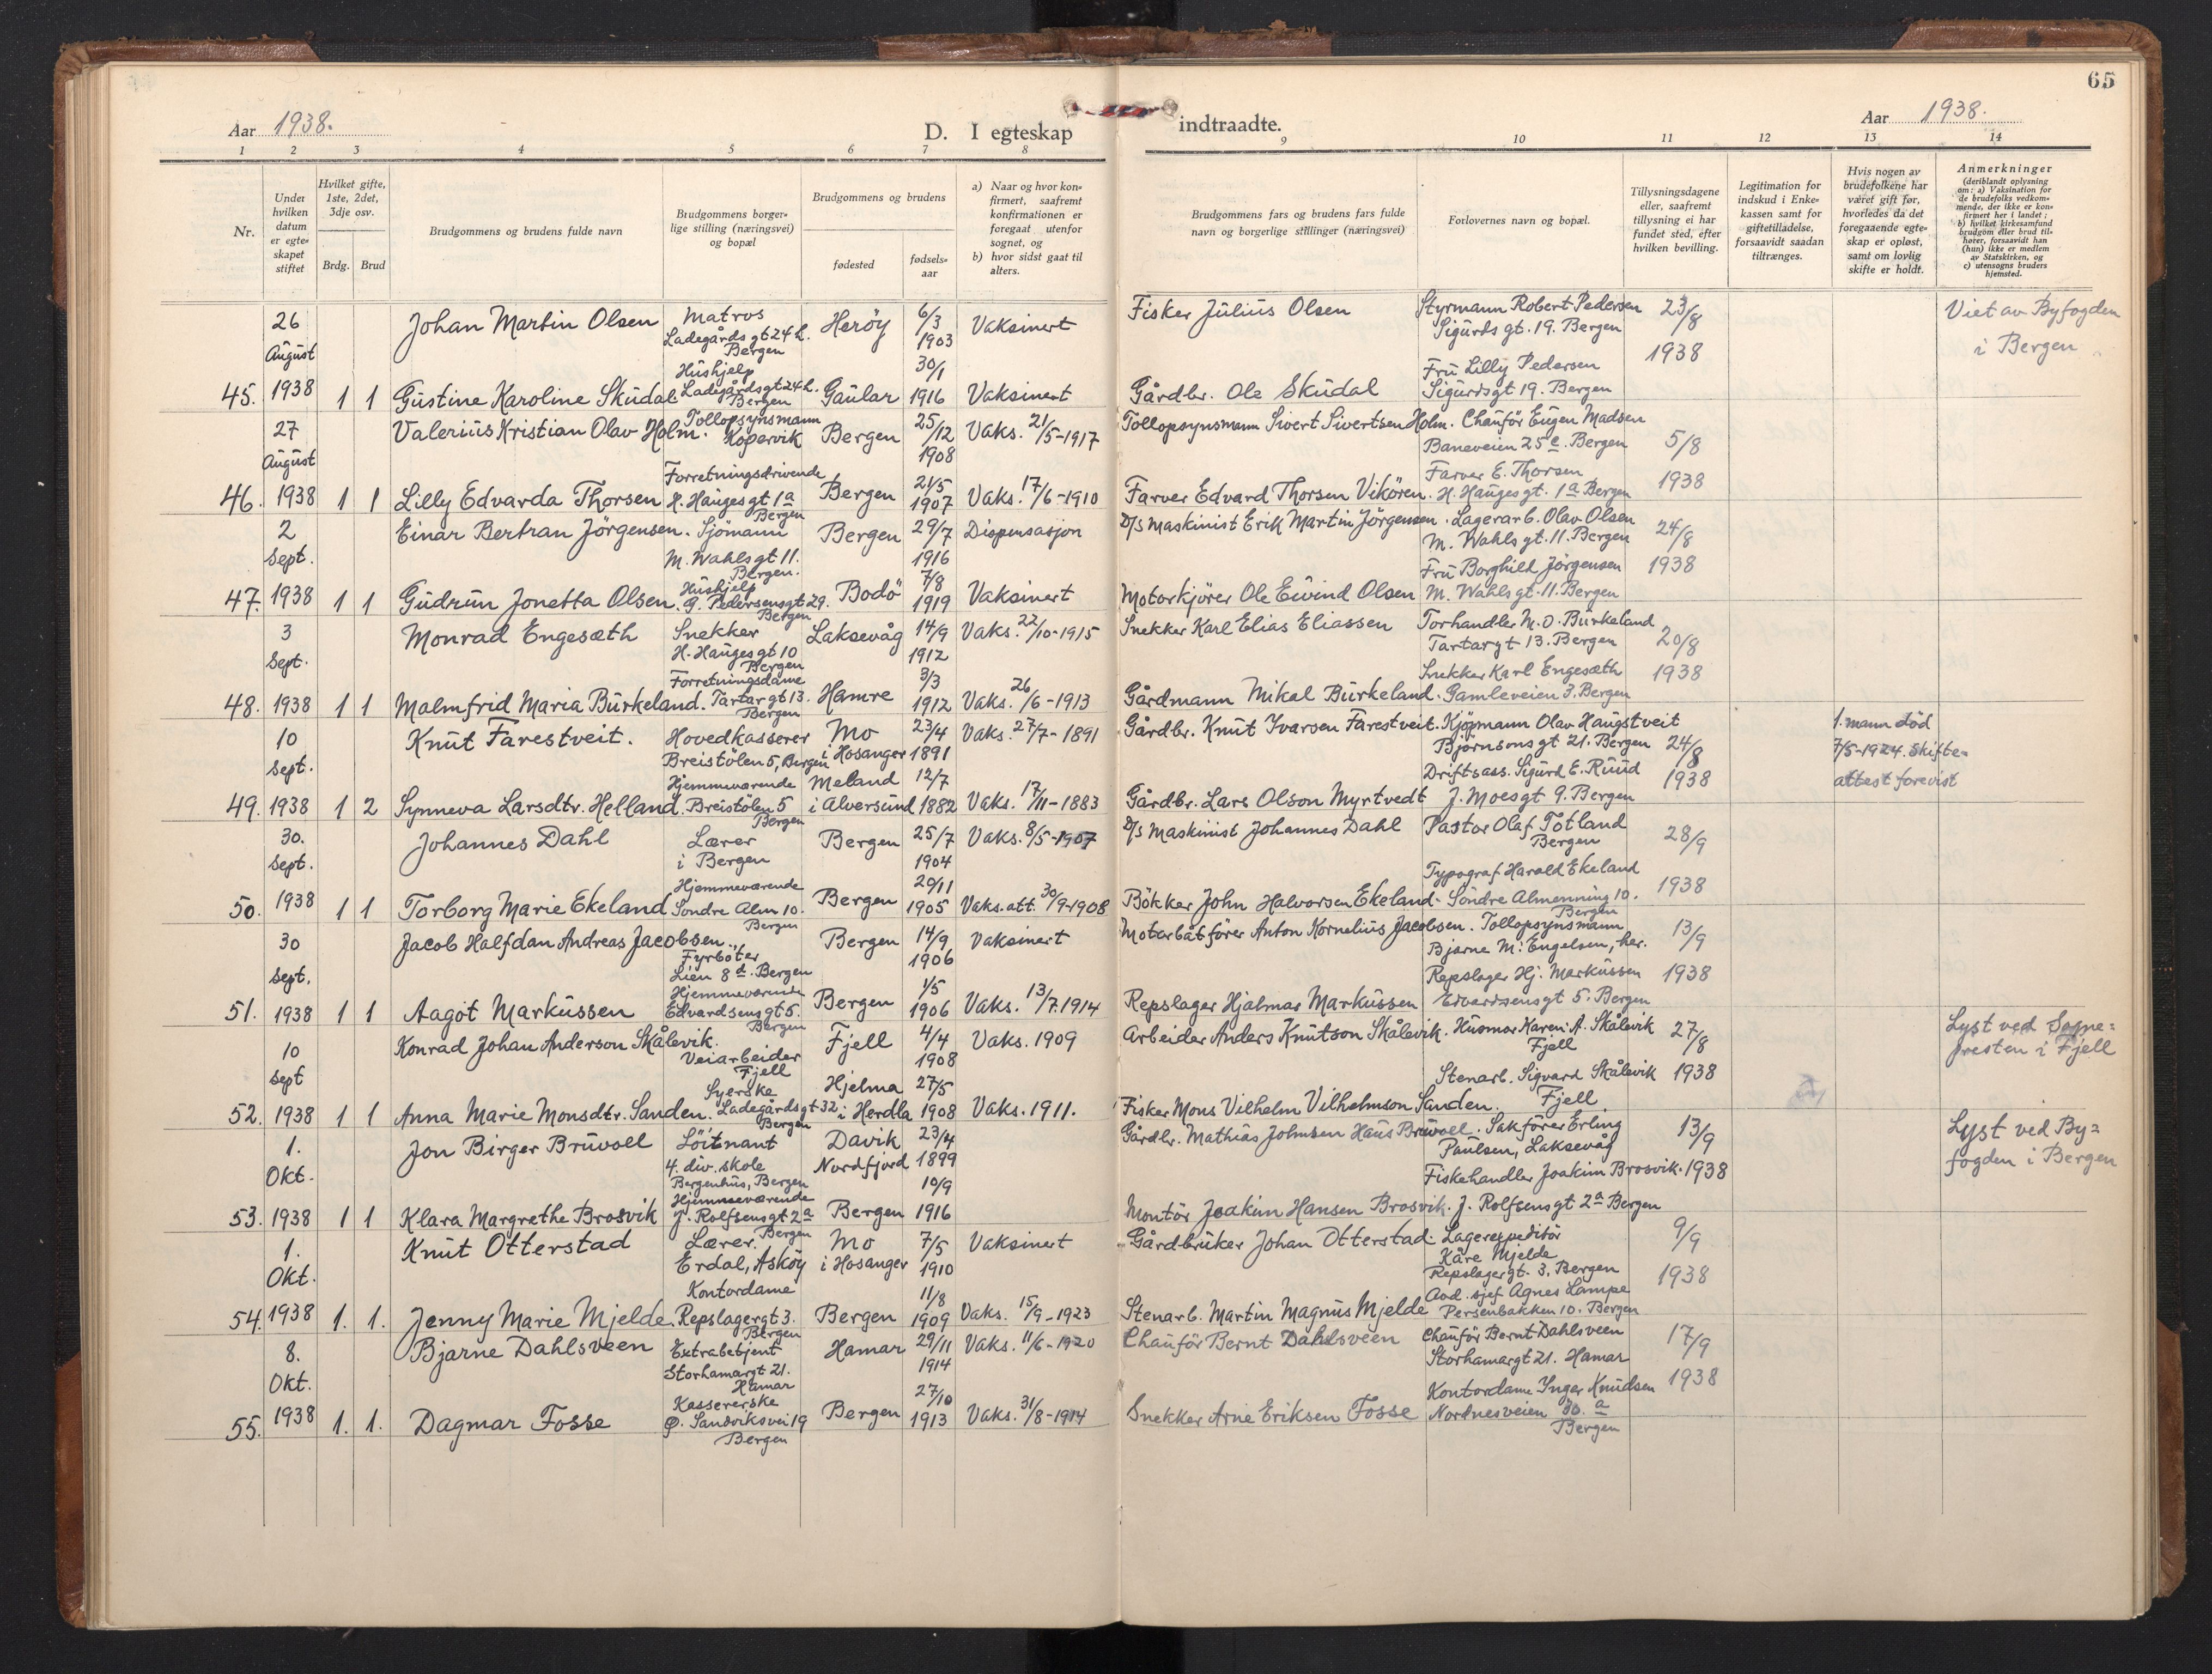 65
Aar 1938.
D. I egteskap
indtraadte.
Aar 1938.
1 2 3 4 5 6 7 8 9 10 11 12 13 14
Nr.
Under
hvilken
datum
er egte-
skapet
stiftet
Hvilket gifte,
1ste, 2det,
3dje osv.
Brdg. Brud
Brudgommens og brudens fulde navn
Brudgommens borger-
lige stilling (næringsvei)
og bopæl
Brudgommens og brudens
fødested
fødsels-
aar
a) Naar og hvor kon-
firmert, saafremt
konfirmationen er
foregaat utenfor
sognet, og
b) hvor sidst gaat til
alters.
Brudgommens fars og brudens fars fulde
navn og borgerlige stillinger (næringsvei)
Forlovernes navn og bopæl.
Tillysningsdagene
eller, saafremt
tillysning ei har
fundet sted, efter
hvilken bevilling.
Legitimation for
indskud i Enke-
kassen samt for
giftetilladelse,
forsaavidt saadan
tiltrænges.
Hvis nogen av
brudefolkene har
været gift før,
hvorledes da det
foregaaende egte-
skap er opløst,
samt om lovlig
skifte er holdt.
Anmerkninger
(deriblandt oplysning
om: a) Vaksination for
de brudefolks vedkom-
mende, der ikke er kon-
firmert her i landet;
b) hvilket kirkesamfund
brudgom eller brud til-
hører, forsaavidt han
(hun) ikke er medlem
av Statskirken, og
c) utensogns bruders
hjemsted.
45.
26
August
1938
1 1
Johan Martin Olsen
Matros
Ladegårdsgt 24 b.
Bergen
Herøy
6/3
1903
Vaksinert
Fisker Julius Olsen
Styrmann Robert Pedersen
Sigurds gt. 19. Bergen
23/8
1938
Viet av Byfogden
i Bergen
Gustine Karoline Skudal
Hushjelp
Ladegårdsgt 24 b.
Bergen
Gaular
30/1
1916
Vaksinert
Gårdbr. Ole Skudal
Fru Lilly Pedersen
Sigurdsgt 19. Bergen
46.
27
August
1938
1 1
Valerius Kristian Olav Holm.
Tollopsynsmann
Kopervik
Bergen
25/12
1908
Vaks. 21/5-1917
Tollopsynsmann Sivert Sivertsen Holm.
Chauför Eugen Madsen
Baneveien 25 c. Bergen
5/8
1938
Lilly Edvarda Thorsen
Forretningsdrivende
H. Hauges gt 1a
Bergen
Bergen
21/5
1907
Vaks. 17/6-1910
Farver Edvard Thorsen Vikören.
Farver E. Thorsen
H. Hauges gt. 1a Bergen
47.
2
Sept.
1938
1 1
Einar Bertran Jörgensen.
Sjömann
M. Wahls gt 11.
Bergen.
Bergen
29/7
1916
Dispensasjon
D/S Maskinist Erik Martin Jörgensen.
Lagerarb. Olav Olsen
M. Wahls gt. 11. Bergen
24/8
1938
Gudrun Jonetta Olsen.
Hushjelp
G. Pedersensgt 29.
Bergen
Bodö
7/8
1919
Vaksinert
Motorkjörer Ole Eivind Olsen
Fru Borghild Jörgensen
M. Wahls gt. 11. Bergen
48.
3
Sept.
1938
1 1
Monrad Engesæth
Snekker
H. Hauges gt 10
Bergen
Laksevåg
14/9
1912
Vaks. 22/10-1915
Snekker Karl Elias Eliassen
Torhandler M. O. Burkeland
Tartargt 13. Bergen
20/8
1938
Malmfrid Maria Burkeland.
Forretningsdame
Tartar gt 13.
Bergen
Hamre
3/3
1912
Vaks. 26/6-1913
Gårdmann Mikal Burkeland.
Snekker Karl Engesæth
Gamleveien 3. Bergen
49.
10
Sept.
1938
1 2
Knut Farestveit.
Hovedkasserer
Breistölen 5, Bergen
Mo
i Hosanger
23/4
1891
Vaks. 27/7-1891
Gårdbr. Knut Ivarsen Farestveit.
Kjöpmann Olav Haugstveit
Bjørnsons gt 21. Bergen
24/8
1938
1. mann död
7/5-1924. Skifte-
attest forevist
Synneva Larsdtr. Helland.
Hjemmeværende
Breistölen 5
Bergen
Meland
i Alversund
12/7
1882
Vaks. 17/11-1883
Gårdbr. Lars Olson Myrtvedt
Driftsass. Sigurd E. Ruud
J. Moesgt 9. Bergen
50.
30.
Sept.
1938
1 1
Johannes Dahl
Lærer
i Bergen
Bergen
25/7
1904
Vaks. 8/5-1907
D/S Maskinist Johannes Dahl
Pastor Olaf Totland
Bergen
28/9
1938
Torborg Marie Ekeland
Hjemmeværende
Söndre Alm 10.
Bergen
Bergen
20/11
1905
Vaks. att. 30/9-1908
Bökker John Halvorsen Ekeland.
Typograf Harald Ekeland
Söndre Almenning 10.
Bergen
51.
30
Sept.
1938
1 1
Jacob Halfdan Andreas Jacobsen.
Fyrböter
Lien 8 d. Bergen
Bergen
14/9
1906
Vaksinert
Motorbåtförer Anton Kornelius Jacobsen.
Tollopsynsmann
Bjarne M. Engelsen, her.
13/9
1938
Aagot Markussen
Hjemmeværende
Edvardsensgt 5.
Bergen
Bergen
1/5
1906
Vaks. 13/7.1914
Repslager Hjalmar Markussen
Repslager Hj. Markussen
Edvardsensgt 5. Bergen
52.
10
Sept
1938
1 1
Konrad Johan Anderson Skålevik.
Veiarbeider
Fjell
Fjell
4/4
1908
Vaks. 1909
Arbeider Anders Knutson Skålevik.
Husmor Karen A. Skålevik
Fjell
27/8
1938
Lyst ved Sogne-
presten i Fjell
Anna Marie Monsdtr. Sanden.
Syerske
Ladegårdsgt 32
Bergen
Hjelma
i Herdla
27/5
1908
Vaks. 1911.
Fisker Mons Vilhelm Vilhelmson Sanden.
Stenarb. Sigvard Skålevik
Fjell
53.
1.
Okt.
1938
1 1
Jon Birger Bruvoll
Löitnant
4. div. skole
Bergenhus, Bergen
Davik
Nordfjord
23/4
1899
Gårdbr. Mathias Johnsen Haus Bruvoll.
Sakförer Erling
Paulsen, Laksevåg
13/9
1938
Lyst ved By-
fogden i Bergen
Klara Margrethe Brosvik
Hjemmeværende
J. Rolfsensgt 2a
Bergen
Bergen
10/9
1916
Montör Joakim Hansen Brosvik.
Fiskehandler Joakim Brosvik.
J. Rolfsensgt 2a Bergen
54.
1.
Okt.
1938
1. 1.
Knut Otterstad
Lærer.
Erdal, Asköy
Mo
i Hosanger
7/5
1910
Vaksinert
Gårdbruker Johan Otterstad.
Lagerexpeditör
Kåre Mjelde
Repslagergt. 3. Bergen
9/9
1938
Jenny Marie Mjelde.
Kontordame
Repslagergt 3.
Bergen
Bergen
11/8
1909
Vaks. 15/9-1923
Stenarb. Martin Magnus Mjelde
Avd. sjef Agnes Lampe
Persenbakken 10. Bergen
55.
8.
Okt.
1938
1. 1.
Bjarne Dahlsveen
Extrabetjent
Storhamargt 21.
Hamar
Hamar
29/11
1914
Vaks. 11/6-1920
Chauför Bernt Dahlsveen
Chauför Bernt Dahlsveen
Storhamargt 21. Hamar
17/9
1938
Dagmar Fosse
Kassererske
Ø. Sandviksvei 19
Bergen
Bergen
27/10
1913
Vaks. 31/8-1914
Snekker Arne Eriksen Fosse
Kontordame Inger Knudsen
Nordnesveien 30. a
Bergen